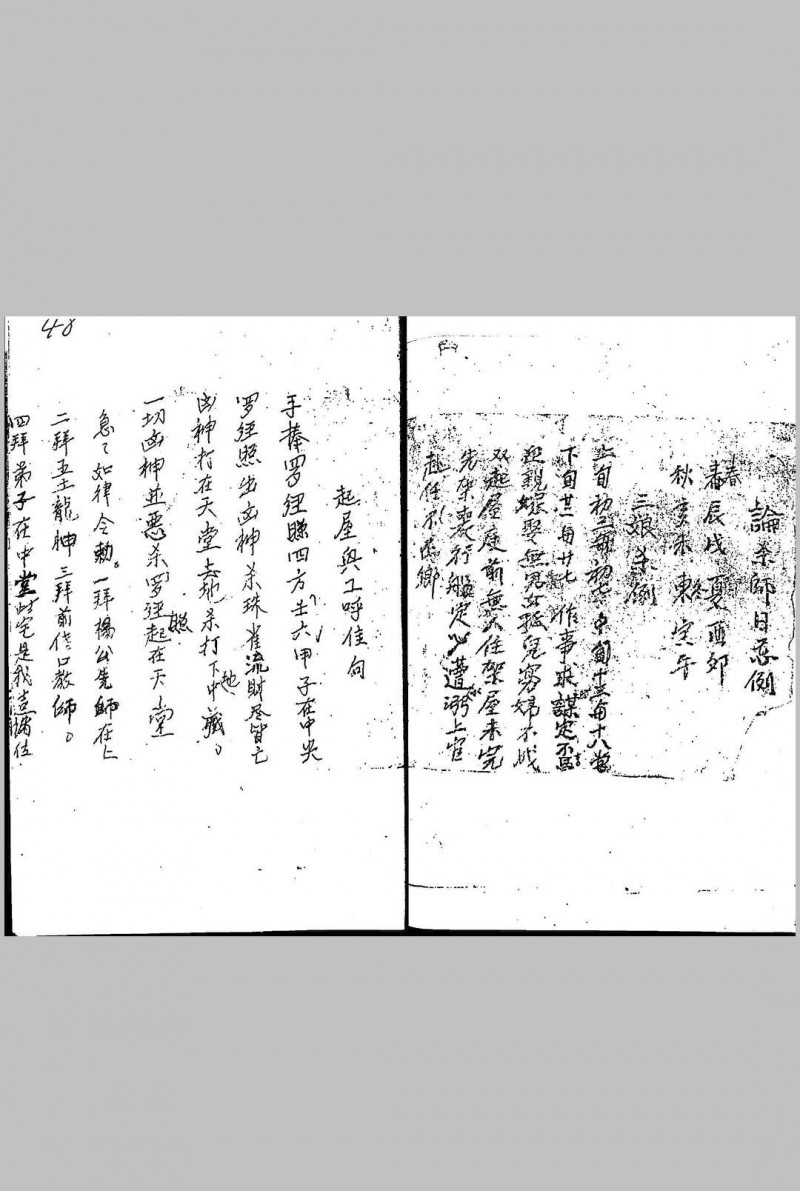 論杀師日忌例
春
春辰戌夏酉卯
秋亥未冬寅午
三娘杀例
上旬初三與初七中旬十三與十八當
下旬廿二與廿七作事求謀定不高
迎親嫁娶無男女孤兒寡婦不成
双起屋庭前無人住架屋未完
先架喪行船定必遭溺上官
赴任不還鄉
48
起屋與工呼佳向
手捧罗经照四方土六甲子在中央
罗经照出凶神杀珠雀流財尽皆亡
凶神打在天堂去地杀打下中藏。
地
一切凶神並惡杀罗经起在天堂
照
急々如律令勅。一拜楊公先師在上
二拜五土龍神三拜前傳口教師。
四拜弟子在中堂此宅是我造